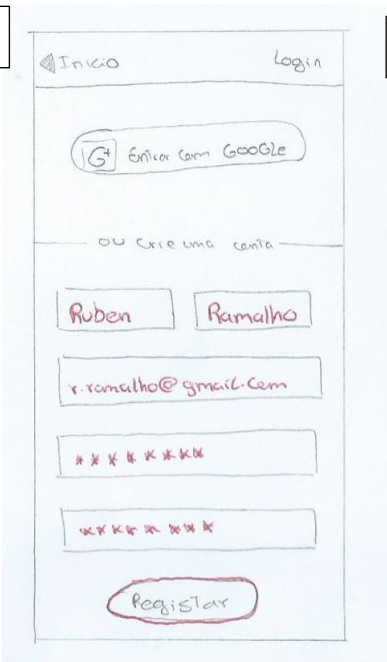 Inicio Login
G+ Entrar com GOOGLe
ou crie uma conta
Ruben Ramalho
r.ramalho@gmail.com
********
********
Registar